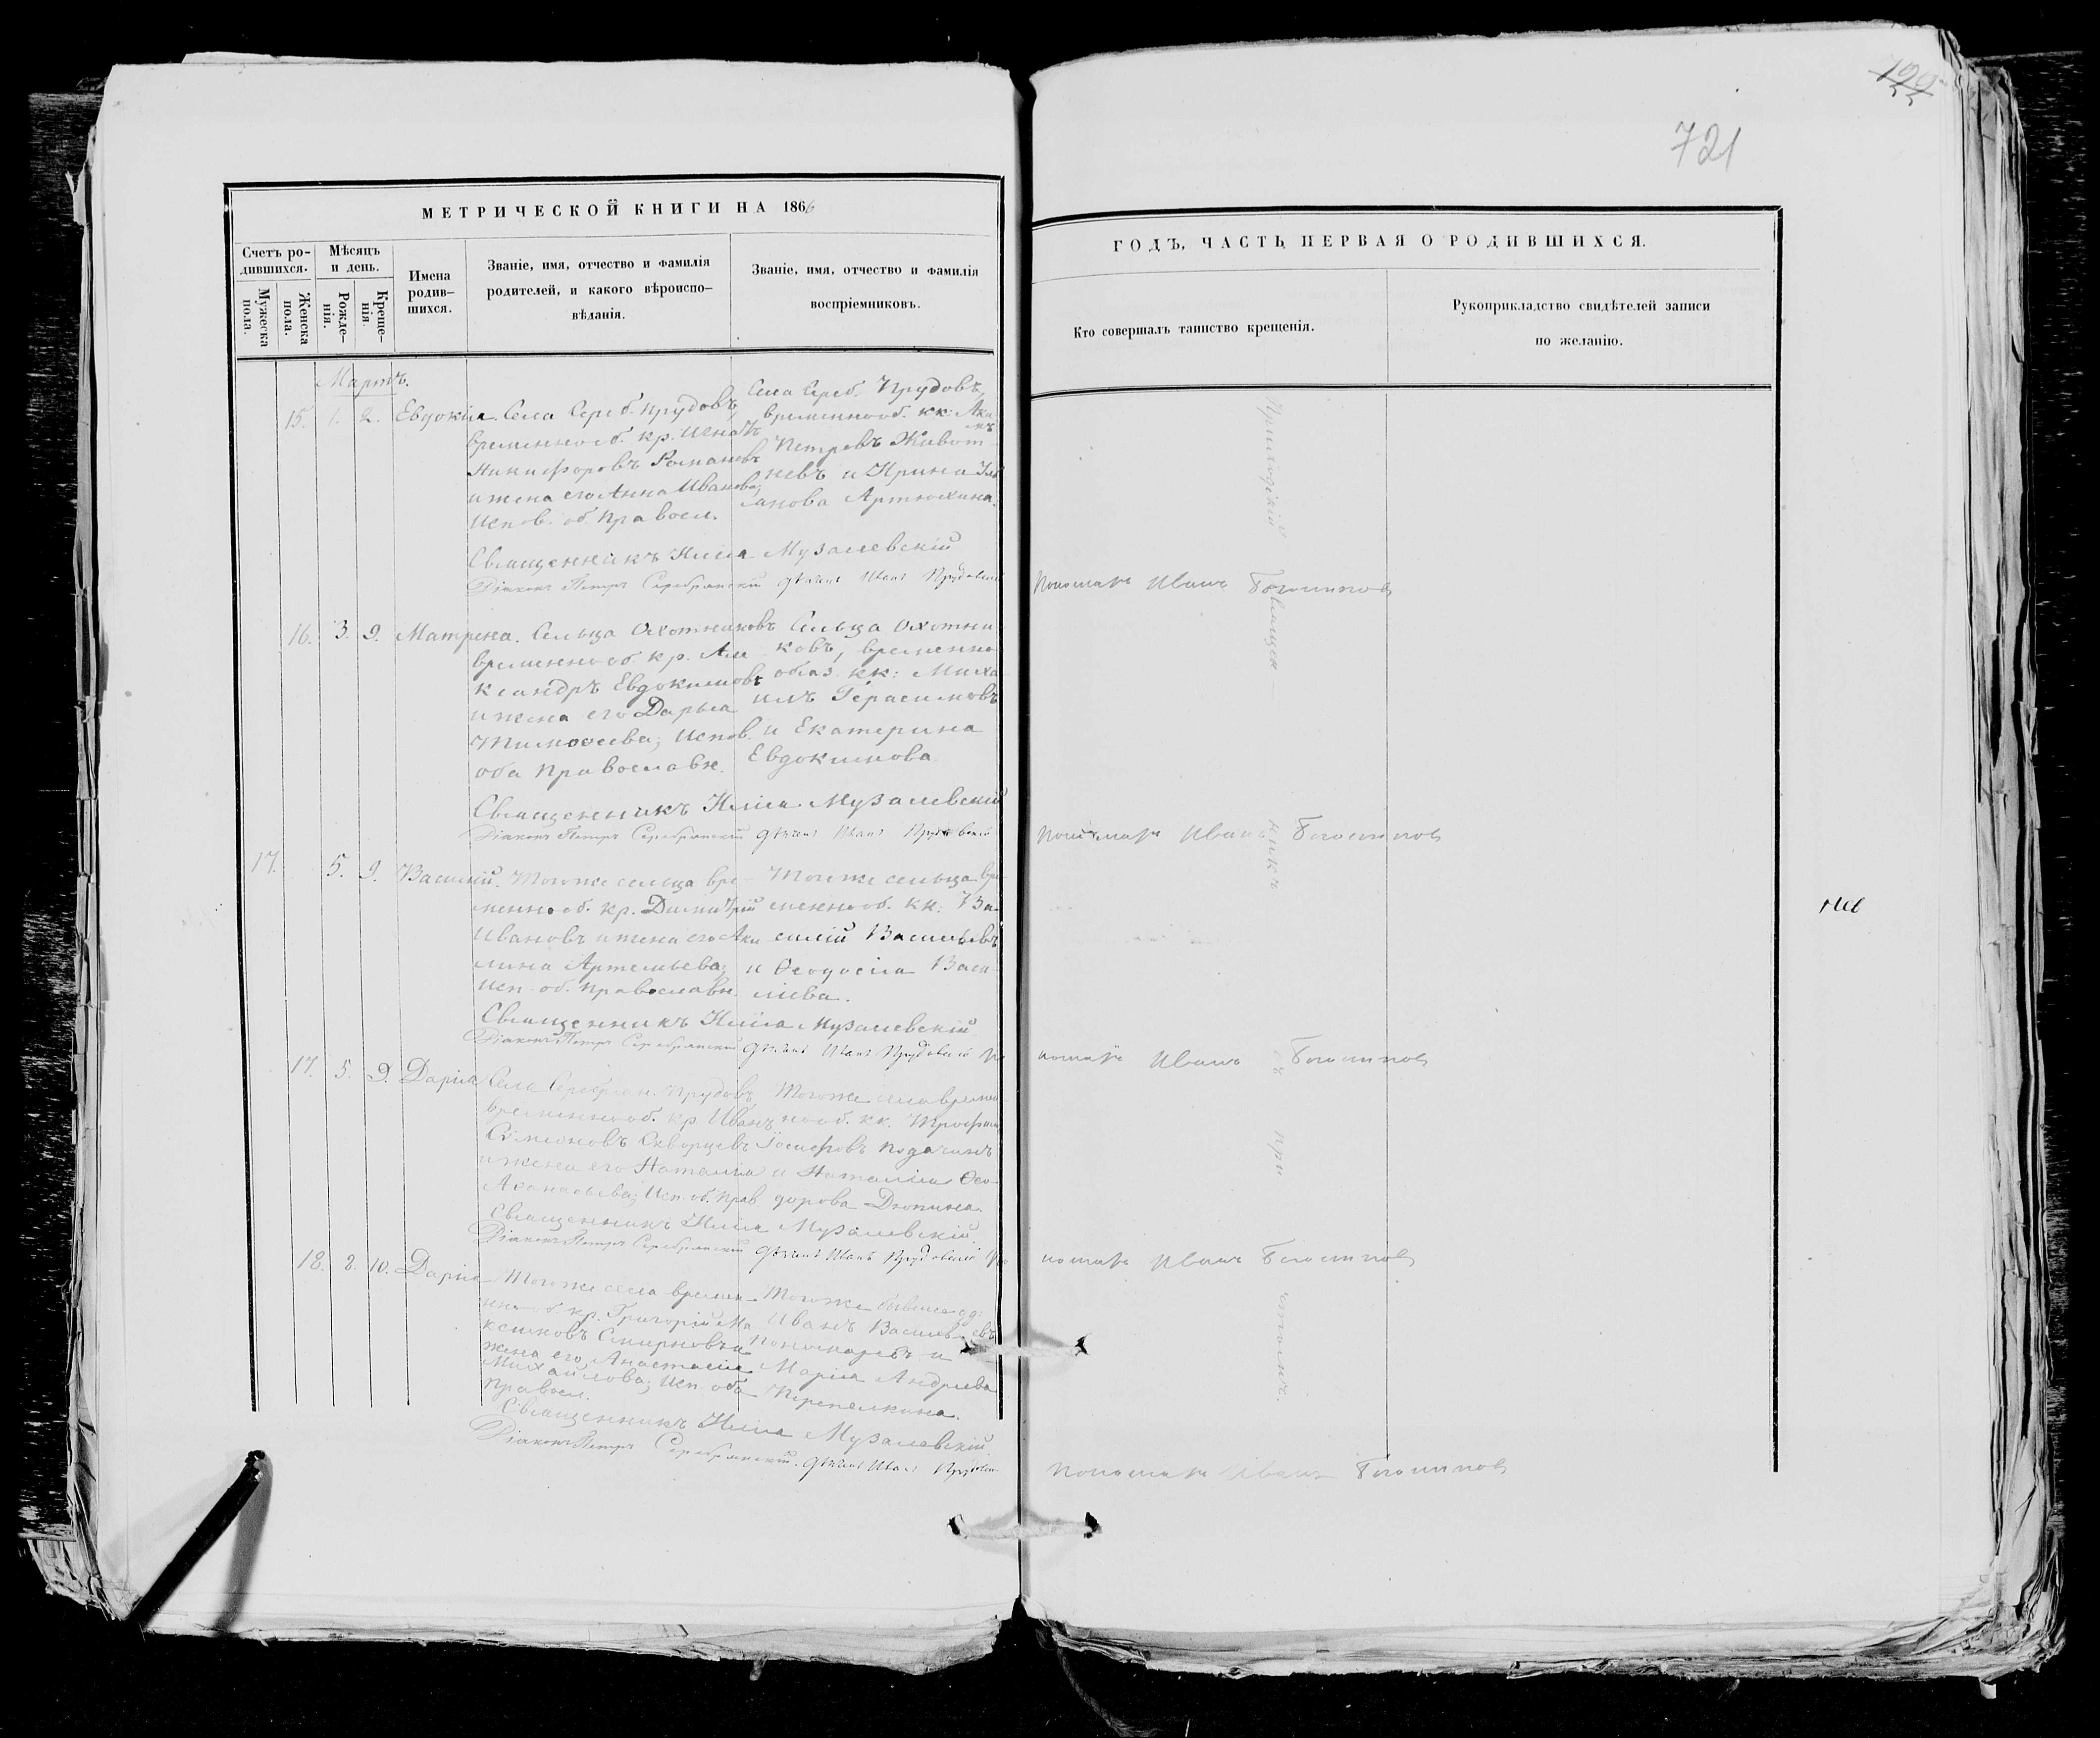 122
721
МЕТРИЧЕСКОЙ КНИГИ НА 1866
ГОДЪ, ЧАСТЬ ПЕРВАЯ О РОДИВШИХСЯ.
Счетъ ро-
дившихся.
Мужеска
пола.
Женска
пола.
Мѣсяцъ
и день.
Рожде-
нія.
Креще-
нія.
Имена
родив-
шихся.
Званіе, имя, отчество и фамилія
родителей, и какого вѣроиспо-
вѣданія.
Званіе, имя, отчество и фамилія
воспріемниковъ.
Кто совершалъ таинство крещенія.
Рукоприкладство свидѣтелей записи
по желанію.
Мартъ.
15. 1. 2. Евдокія.
Села Сереб. Прудовъ,
временнооб. кр. Игнатъ
Никифоровъ Романовъ
и жена его Анна Иванова;
Испов. об. правосл.
Села Сереб. Прудовъ,
временнооб. кк: Аки
мъ
Петровъ Живот-
невъ и Ирина
Артюхина.
Священникъ Илія Музалевскій
Діаконъ Петръ Серебрянскій дьячекъ Иванъ Прудовскій
Пономарь Иванъ
16. 3. 9. Матрена.
Сельца Охотниковъ
временнооб. кр. Але
ксандръ Евдокимовъ
и жена его Дарья
Тимоѳеева; Испов.
оба православн.
Сельца Охотни
ковъ, временно
обяз. кк: Миха
илъ Герасимовъ
и Екатерина
Евдокимова
Священникъ Илія Музалевскій
Діаконъ Петръ Серебрянскій дьячекъ Иванъ Прудовскій
Пономарь Иванъ
17. 5. 9. Василій.
Тогоже сельца вре-
меннооб. кр. Димитрій
Ивановъ и жена его Аки
лина Артемьева;
Исп. об. православн.
Тогоже сельца вре-
меннооб. кк: Ва-
силій Васильевъ
и Ѳеодосія Васи-
ліева.
Священникъ Илія Музалевскій
Діаконъ Петръ Серебрянскій дьячекъ Иванъ Прудовскій По
номарь Иванъ
17. 5. 9. Дарія
Села Серебрян. Прудовъ,
временнооб. кр. Иванъ
Сѵмеоновъ Скворцевъ
и жена его Наталія
Аѳанасьева; Исп. об. прав
Тогоже села времен
нооб. кк. Трофимъ
Іосифовъ
и Наталія Ѳео-
дорова Дюпина.
Священникъ Илія Музалевскій
Діаконъ Петръ Серебрянскій дьячекъ Иванъ Прудовскій По
номарь Иванъ
18. 8. 10. Дарія
Тогоже села времен-
нооб. кр. Григорій Ма
ксимовъ Смирновъ и
жена его Анастасія
Михайлова; Исп. оба
правосл.
Тогоже бывшее дд:
Иванъ Васильевъ
Пономаревъ и
Марія Андреева
Перепелкина.
Священникъ Илія Музалевскій
Діаконъ Петръ Серебрянскій. дьячекъ Иванъ
Пономарь Иванъ
Приходскій
Священ
никъ
съ при
чтомъ.